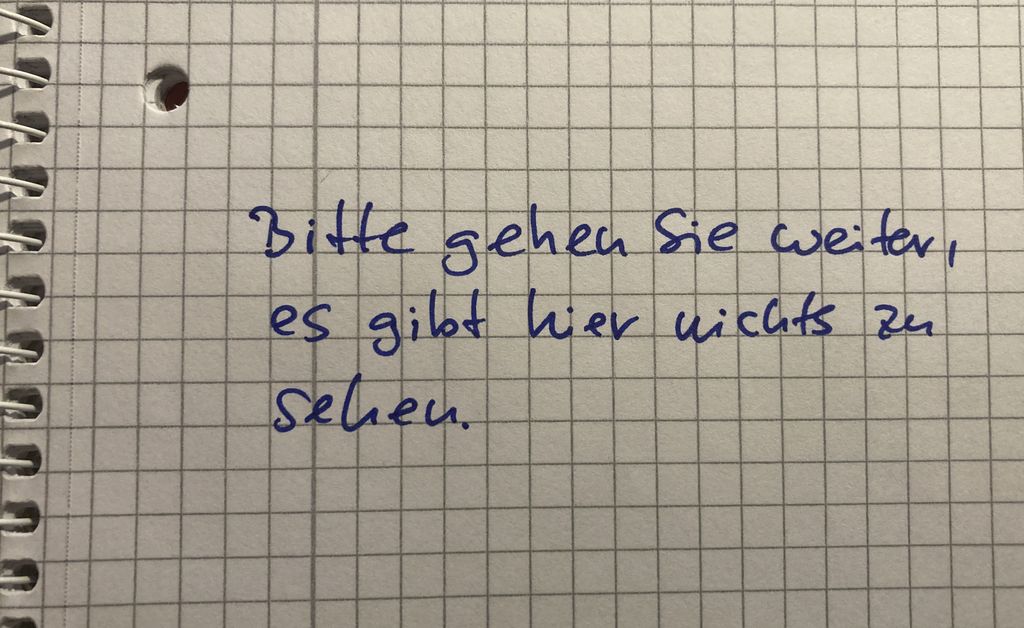 Bitte gehen Sie weiter,
es gibt hier nichts zu
sehen.